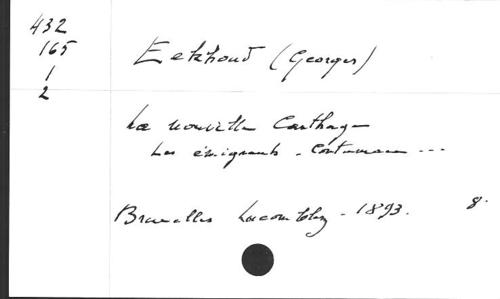 432
165
1
2
Eekhoud (Georges)
La nouvelle Carthage
Les émigrants. Contumace ...
Bruxelles Lacomblez - 1893. 8.